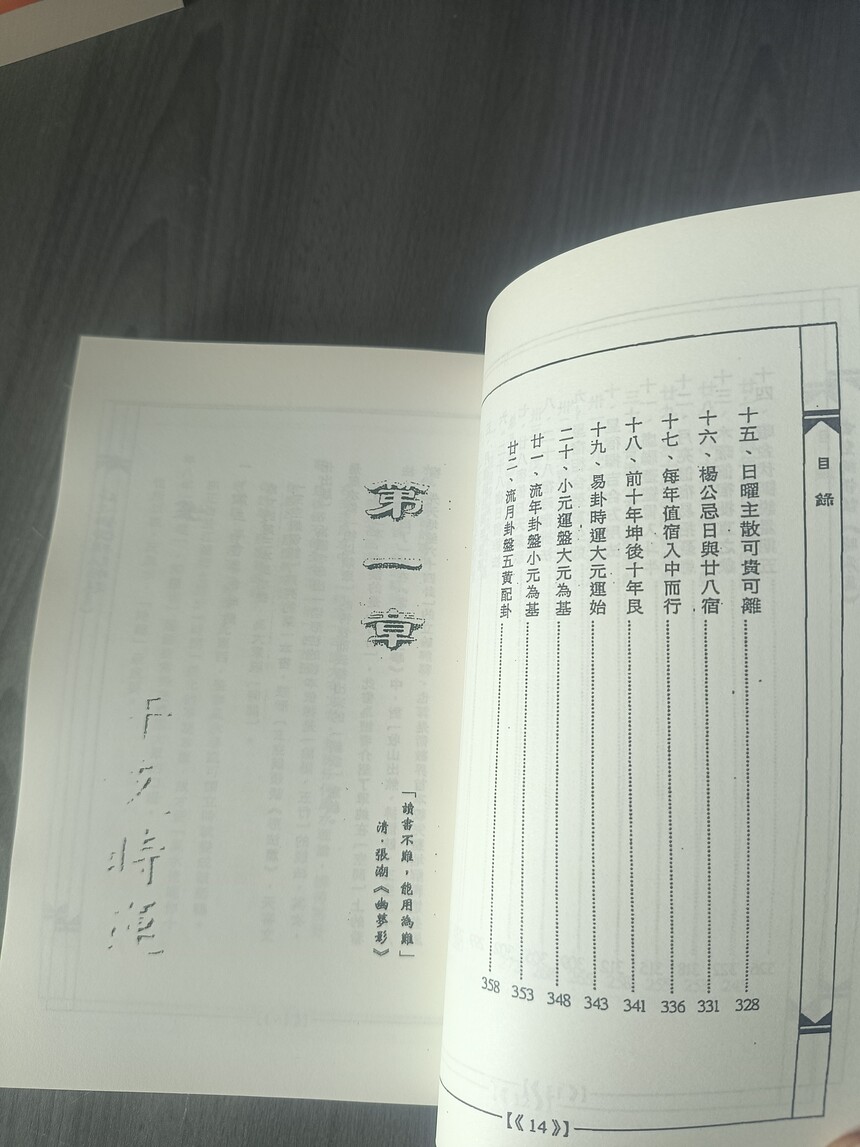 目錄
十五、日曜主散可貴可離 328
十六、楊公忌日與廿八宿 331
十七、每年值宿入中而行 336
十八、前十年坤後十年艮 341
十九、易卦時運大元運始 343
二十、小元運盤大元為基 348
廿一、流年卦盤小元為基 353
廿二、流月卦盤五黃配卦 358
【《14》】
第一章
「讀書不難，能用為難」
清．張潮《幽夢影》
時運